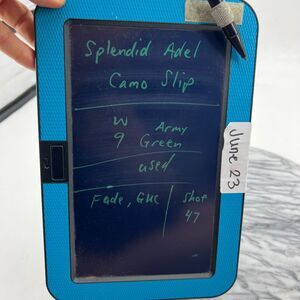 Splendid Adel
Camo Slip
W Army
9 Green
used
Fade, GUC Shoe
47
June 23